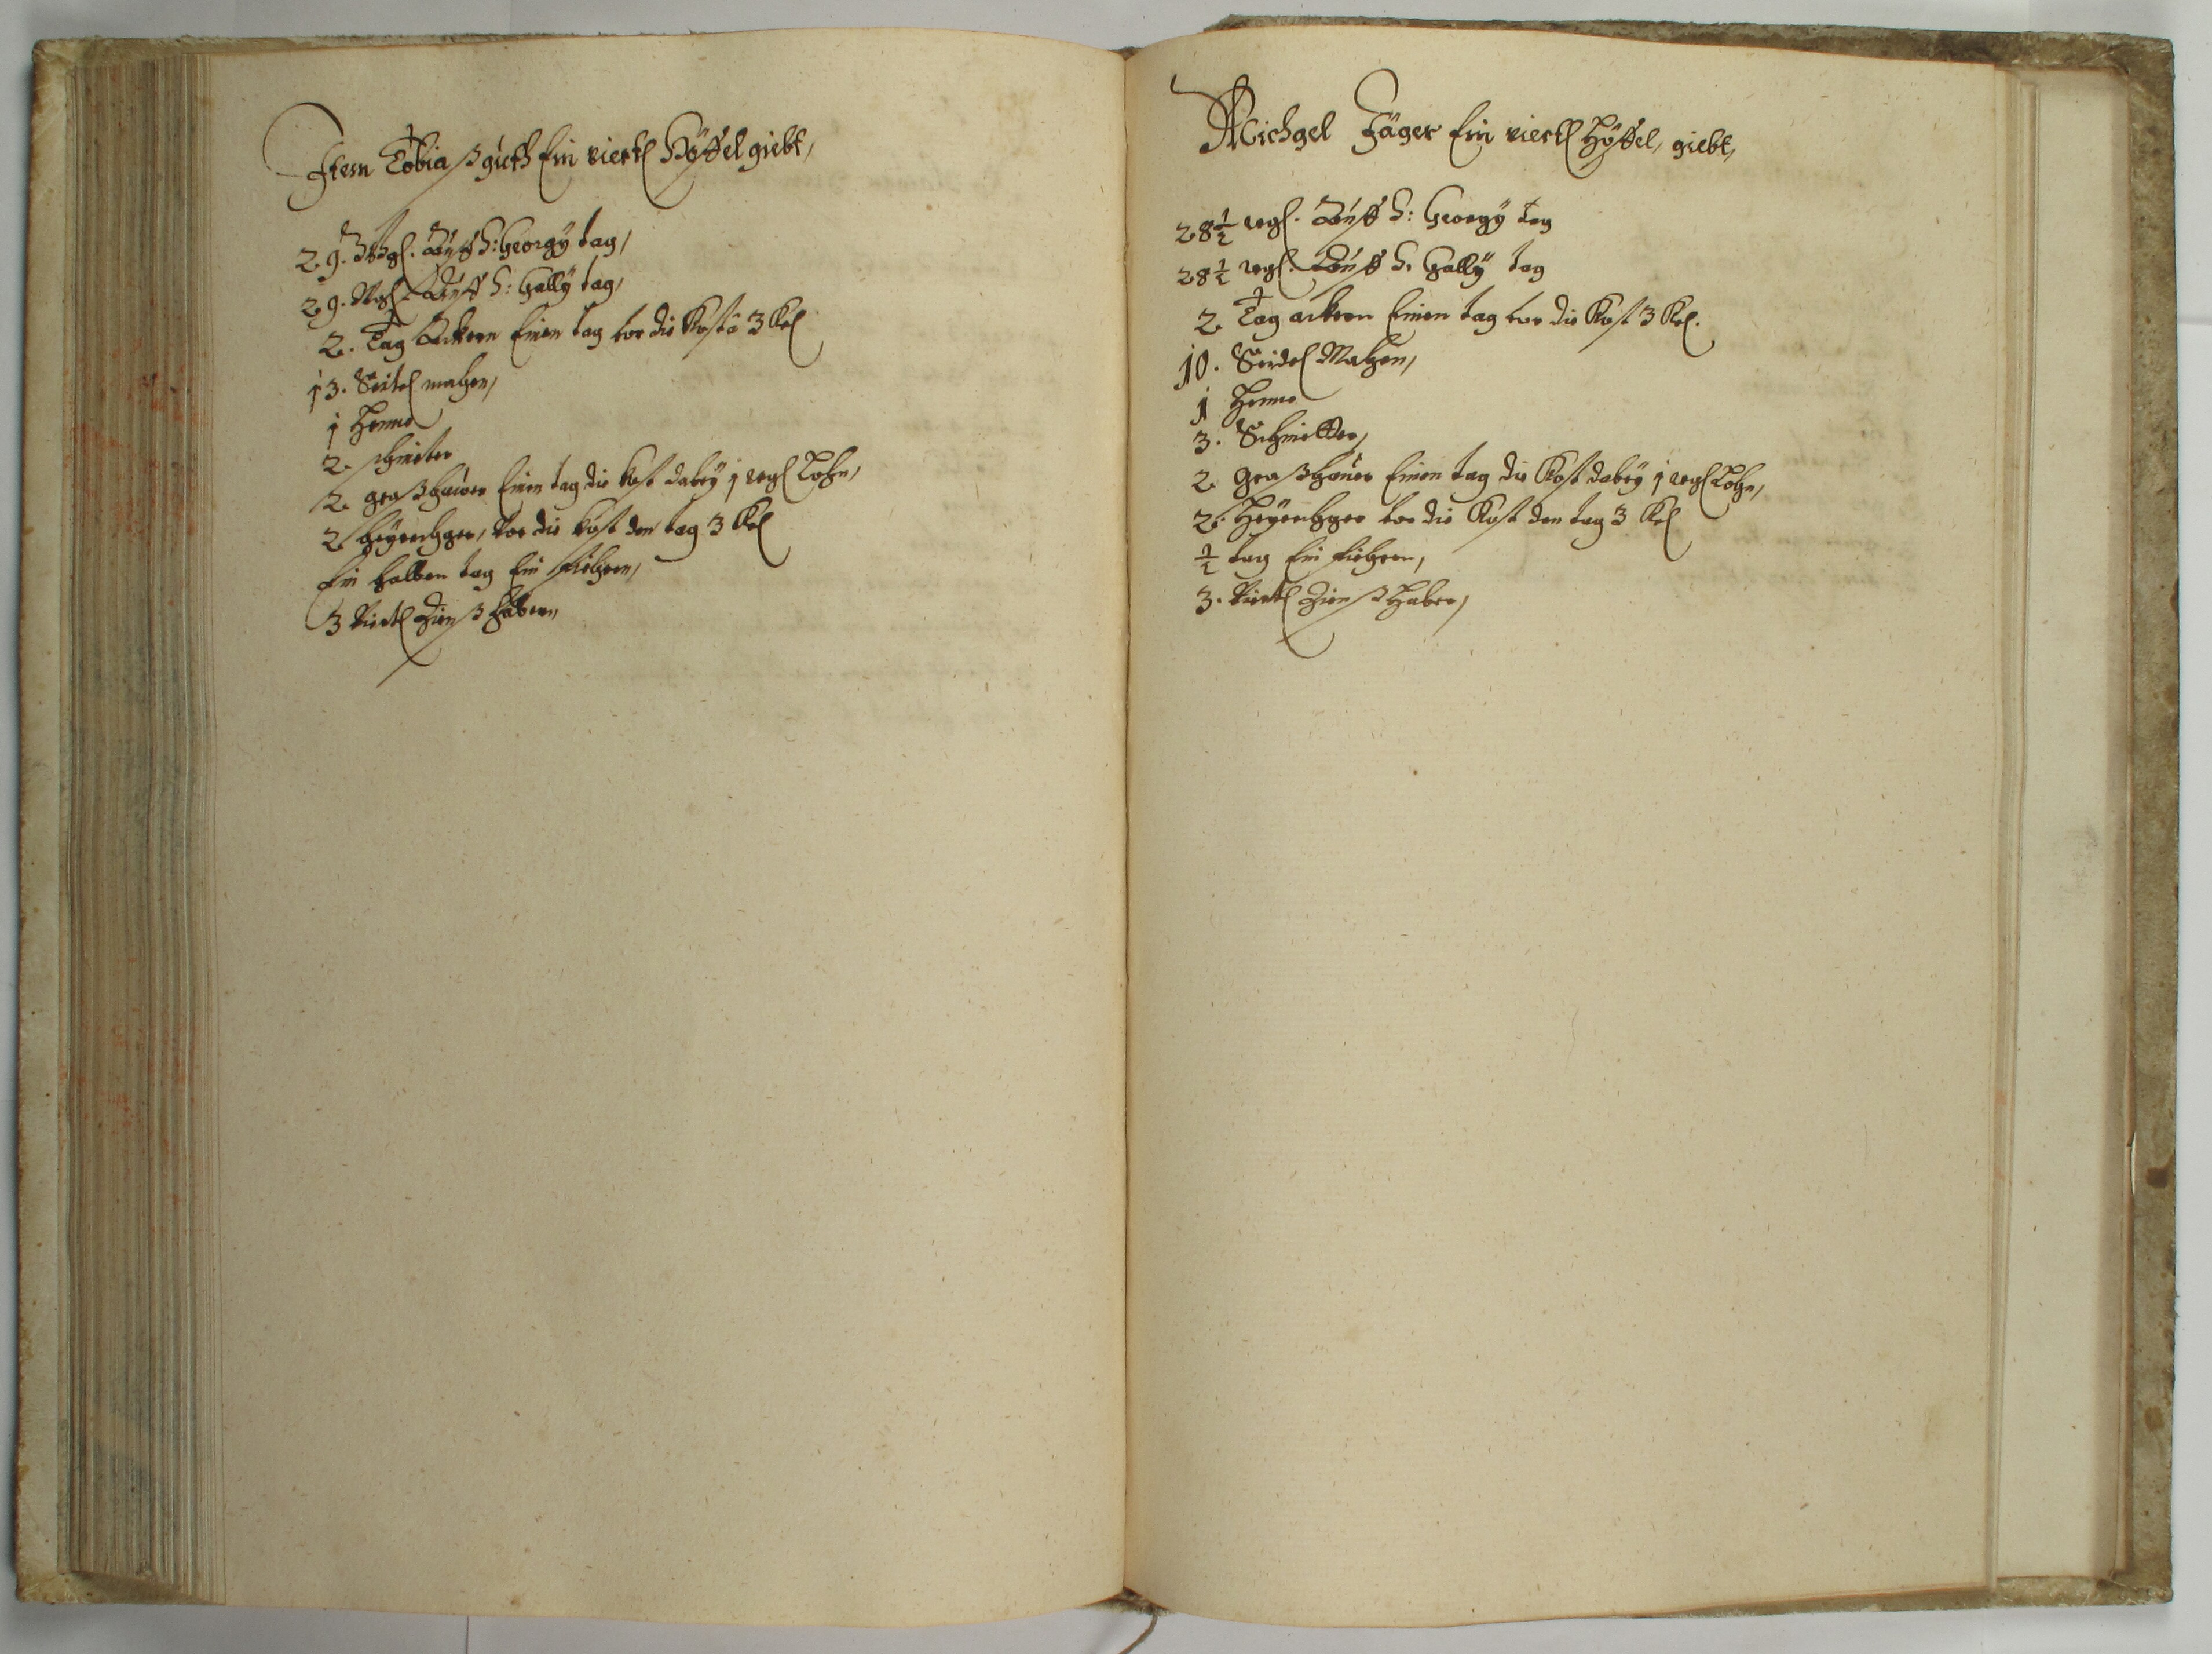 Item Tobiaß guth Ein viertl Höffel giebt,
29. Wgl. Auff S: Georgÿ tag,
29. Wgl. Auff S: Gallÿ tag,
2. Tag Ackern Einen tag vor die Kost â 3 Kr
13. Seitel mahen,
1 Henne
2. schniter
2. graß hauer Einen tag die kost dabeÿ 1 wgl Lohn,
2 heÿrechger, vor die kost den tag 3 Kr
Ein halben tag Ein fiehren,
3 Viertl Zinß habern,
Michael Jäger Ein viertl Höffel, giebt,
28½ wgl. Auff S: Georgÿ tag
28½ wgl. Auff S. Gallÿ tag
2. Tag ackern Einen tag vor die Kost 3 Kr.
10. Seidel Mahen,
1 Henne
3. Schnitter,
2. graß hauer Einen tag die Kost dabeÿ 1 wgl Lohn,
2. Heÿrechger vor die Kost den tag 3 Kr
½ tag Ein fiehren,
3. Viertl Zinß Haber,